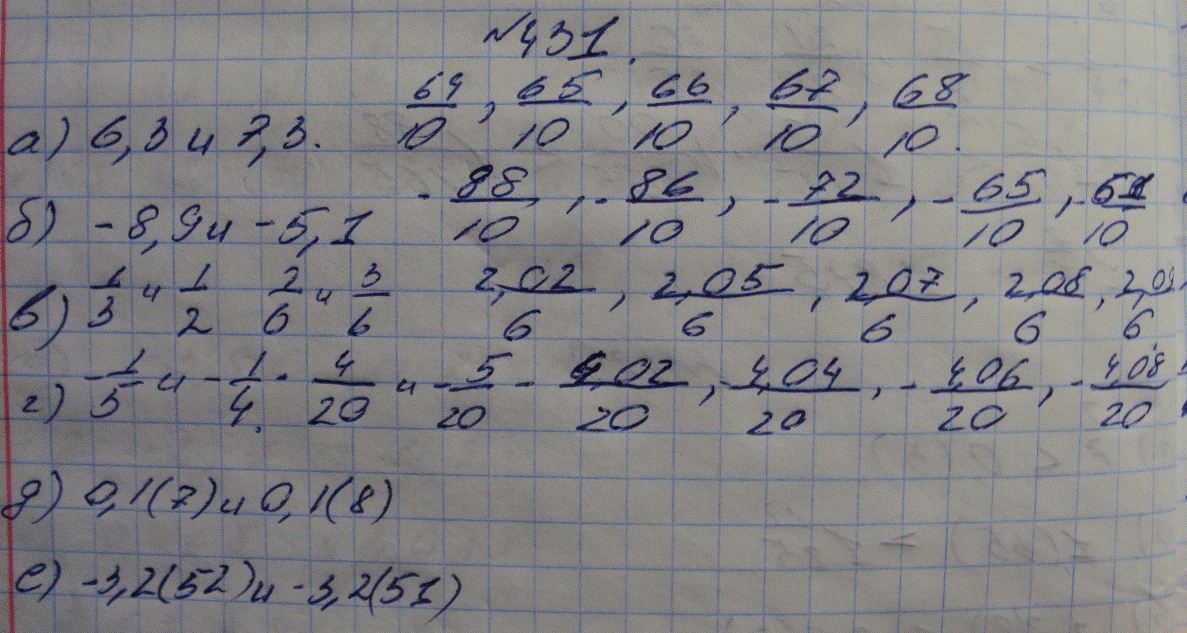 №431.
а) 6,3 и 7,3. 64/10, 65/10, 66/10, 67/10, 68/10.
б) -8,9 и -5,1 -88/10, -86/10, -72/10, -65/10, -/10
в) 1/3 и 1/2 2/6 и 3/6 2,02/6, 2,05/6, 2,07/6, 2,08/6, 2,09/6
г) -1/5 и -1/4. - 4/20 и -5/20 - 4,02/20, -4,04/20, -4,06/20, -4,08/20
д) 0,1(7) и 0,1(8)
е) -3,2(52) и -3,2(51)